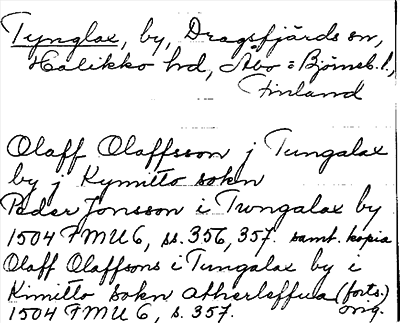 Tynglax, by, Dragsfjärds sn,
Halikko hd, Åbo = Björneb. l.,
Finland
Olaff Olaffsson j Tungalax
by j Kymitto sokn
Peder Jonsson i Twngalax by
1504 FMU 6, ss. 356, 357. samt. kopia
Olaff Olaffsons i Tungalax by i
Kimitto sokn atherleffua (forts.)
1504 FMU 6, s. 357. orig.